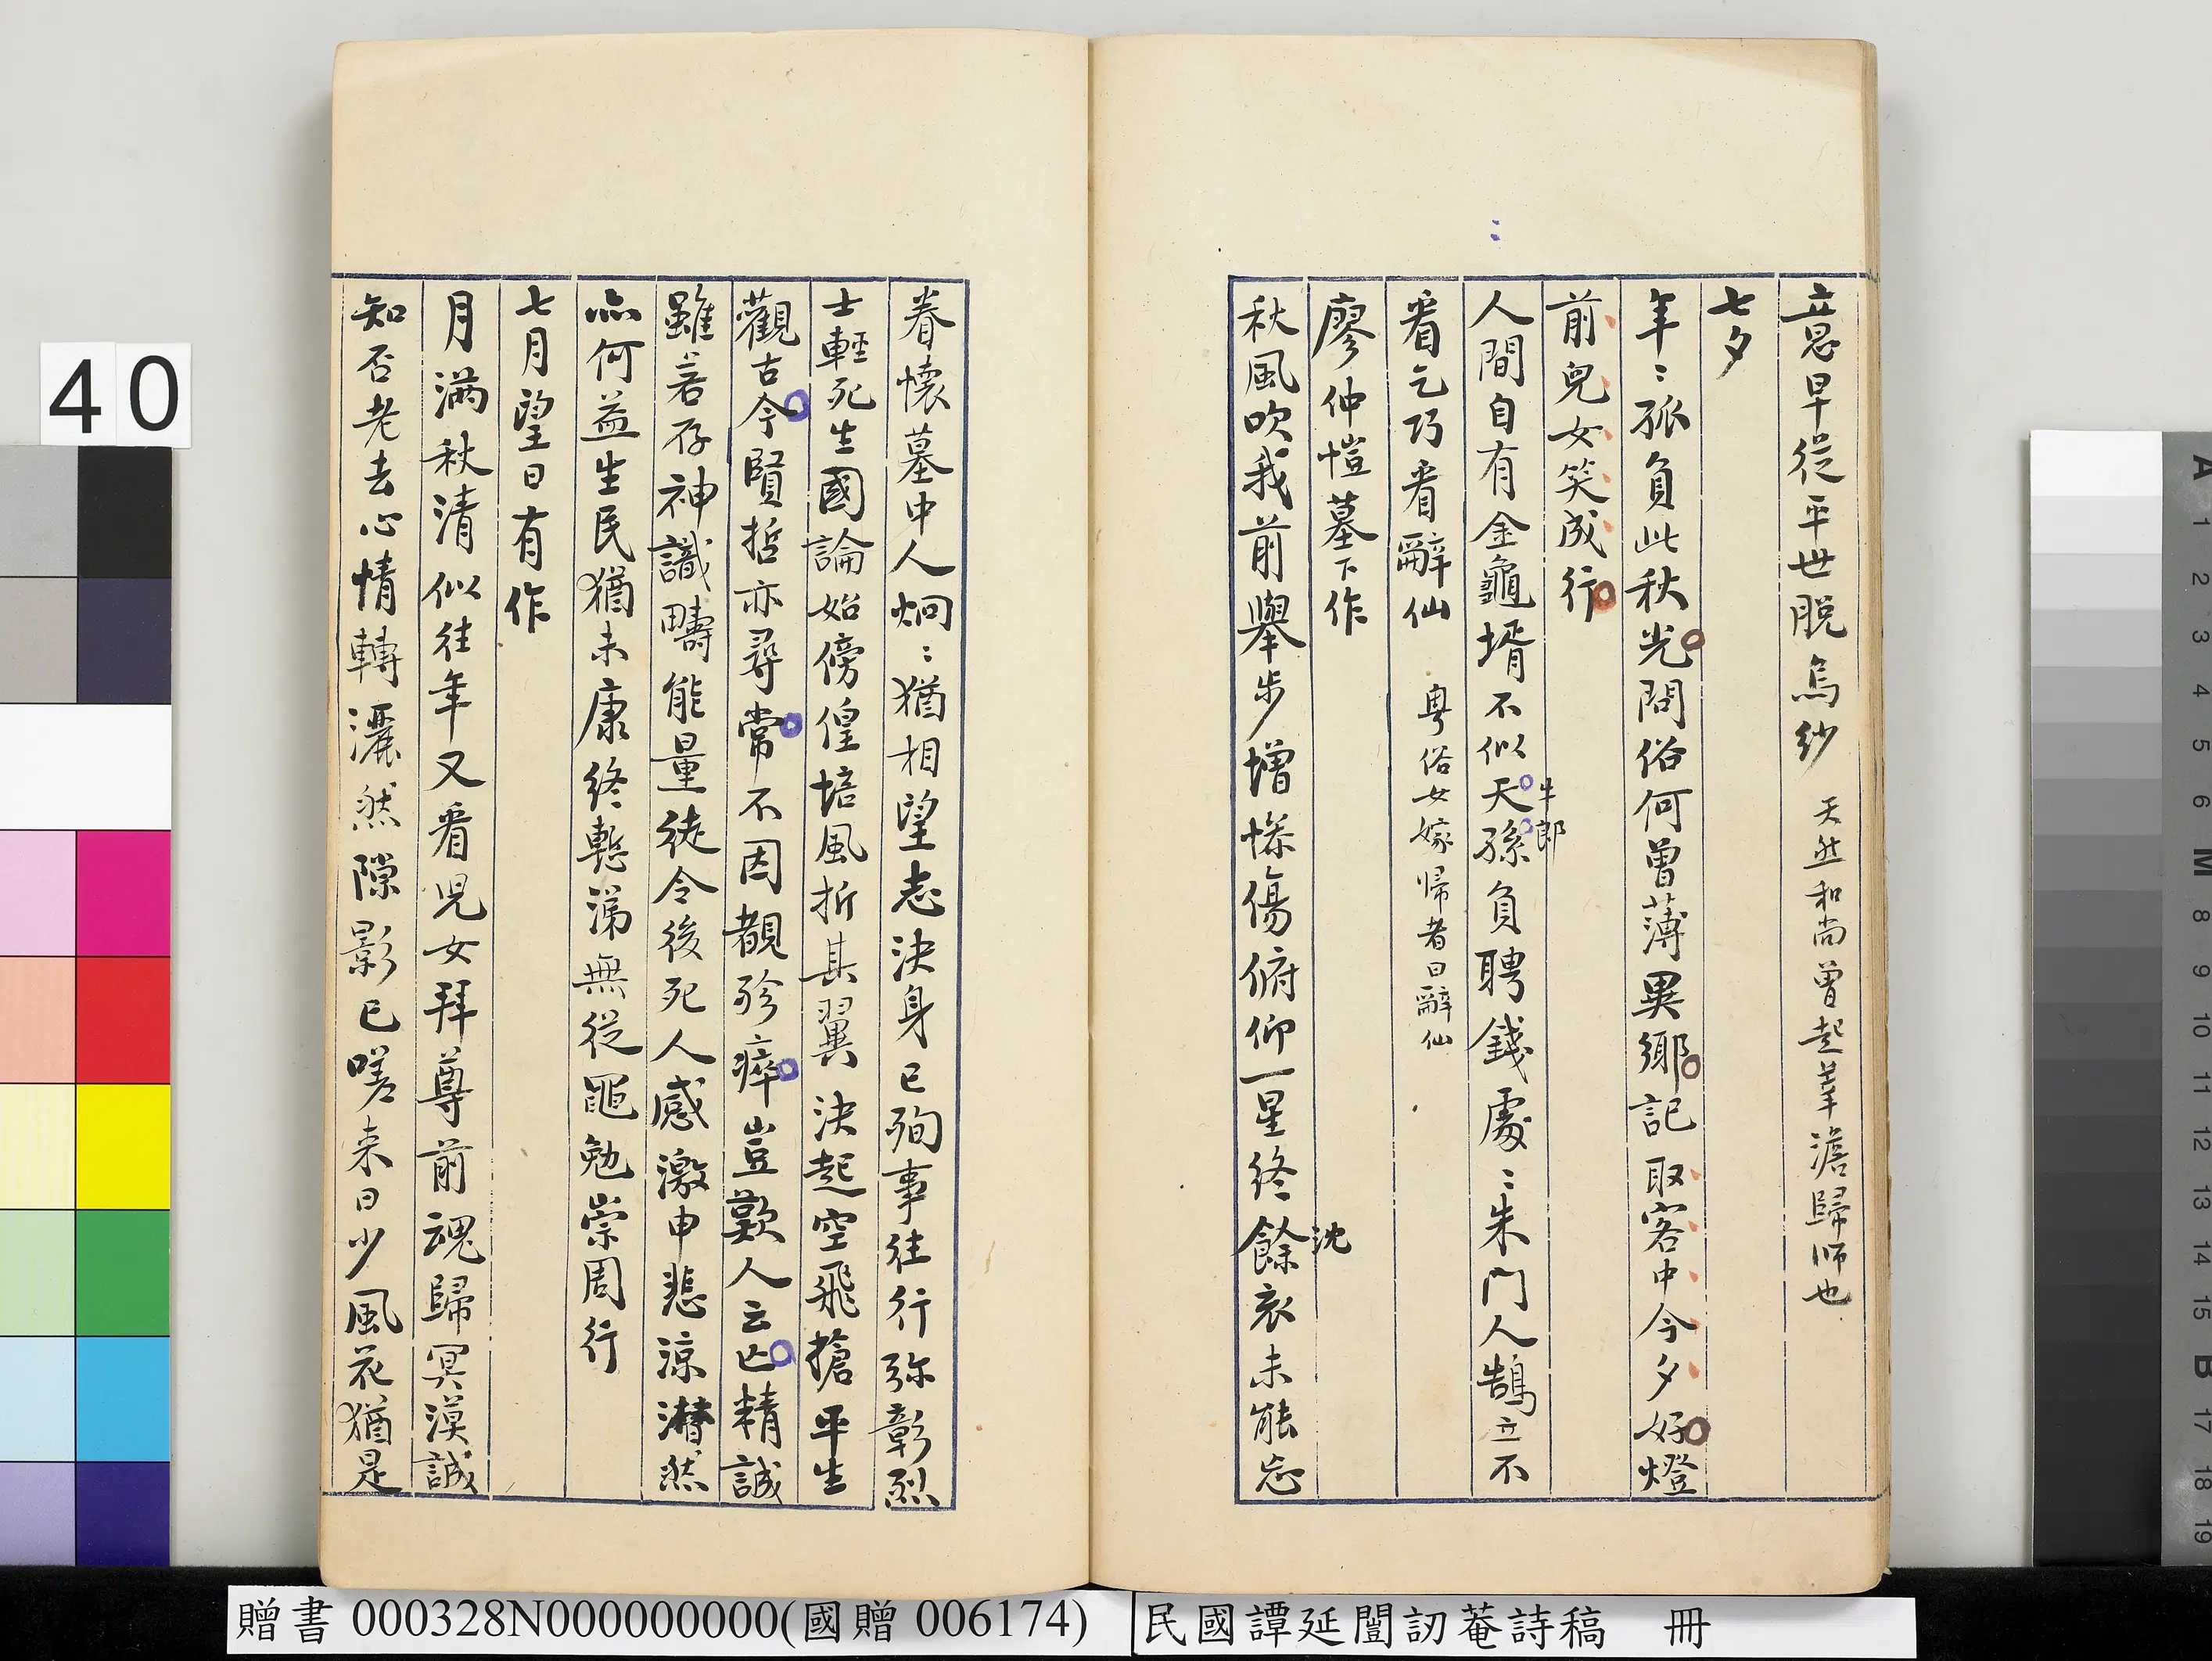 意早從平世脫烏紗 天然和尚曾起羊澹歸師也
七夕
年〻孤負此秋光問俗何曾薄異鄉記取客中今夕好燈
前兒女笑成行
人間自有金龜壻不似天孫負聘錢處〻朱門人鵠立不
牛郎
看乞巧看辭仙 粵俗女嫁歸者曰辭仙
廖仲愷墓下作
秋風吹我前舉步增慘傷俯仰一星終餘哀未能忘
沈
眷懷墓中人炯〻猶相望志決身已殉事往行弥彰烈
士輕死生國論始傍偟培風折其翼決起空飛搶平生
觀古今賢哲亦尋常不因覩殄瘁豈歎人云亡精誠
雖若存神識疇能量徒令後死人感激申悲涼潸然
亦何益生民猶未康終慙涕無從黽勉崇周行
七月望日有作
月滿秋清似往年又看兒女拜尊前魂歸冥漠誠
知否老去心情轉灑然隙影已嗟来日少風花猶是
40
贈書 000328N000000000(國贈 006174)
民國譚延闓訒菴詩稿 冊
A 1 2 3 4 5 6 M 8 9 10 11 12 13 14 15 B 17 18 19